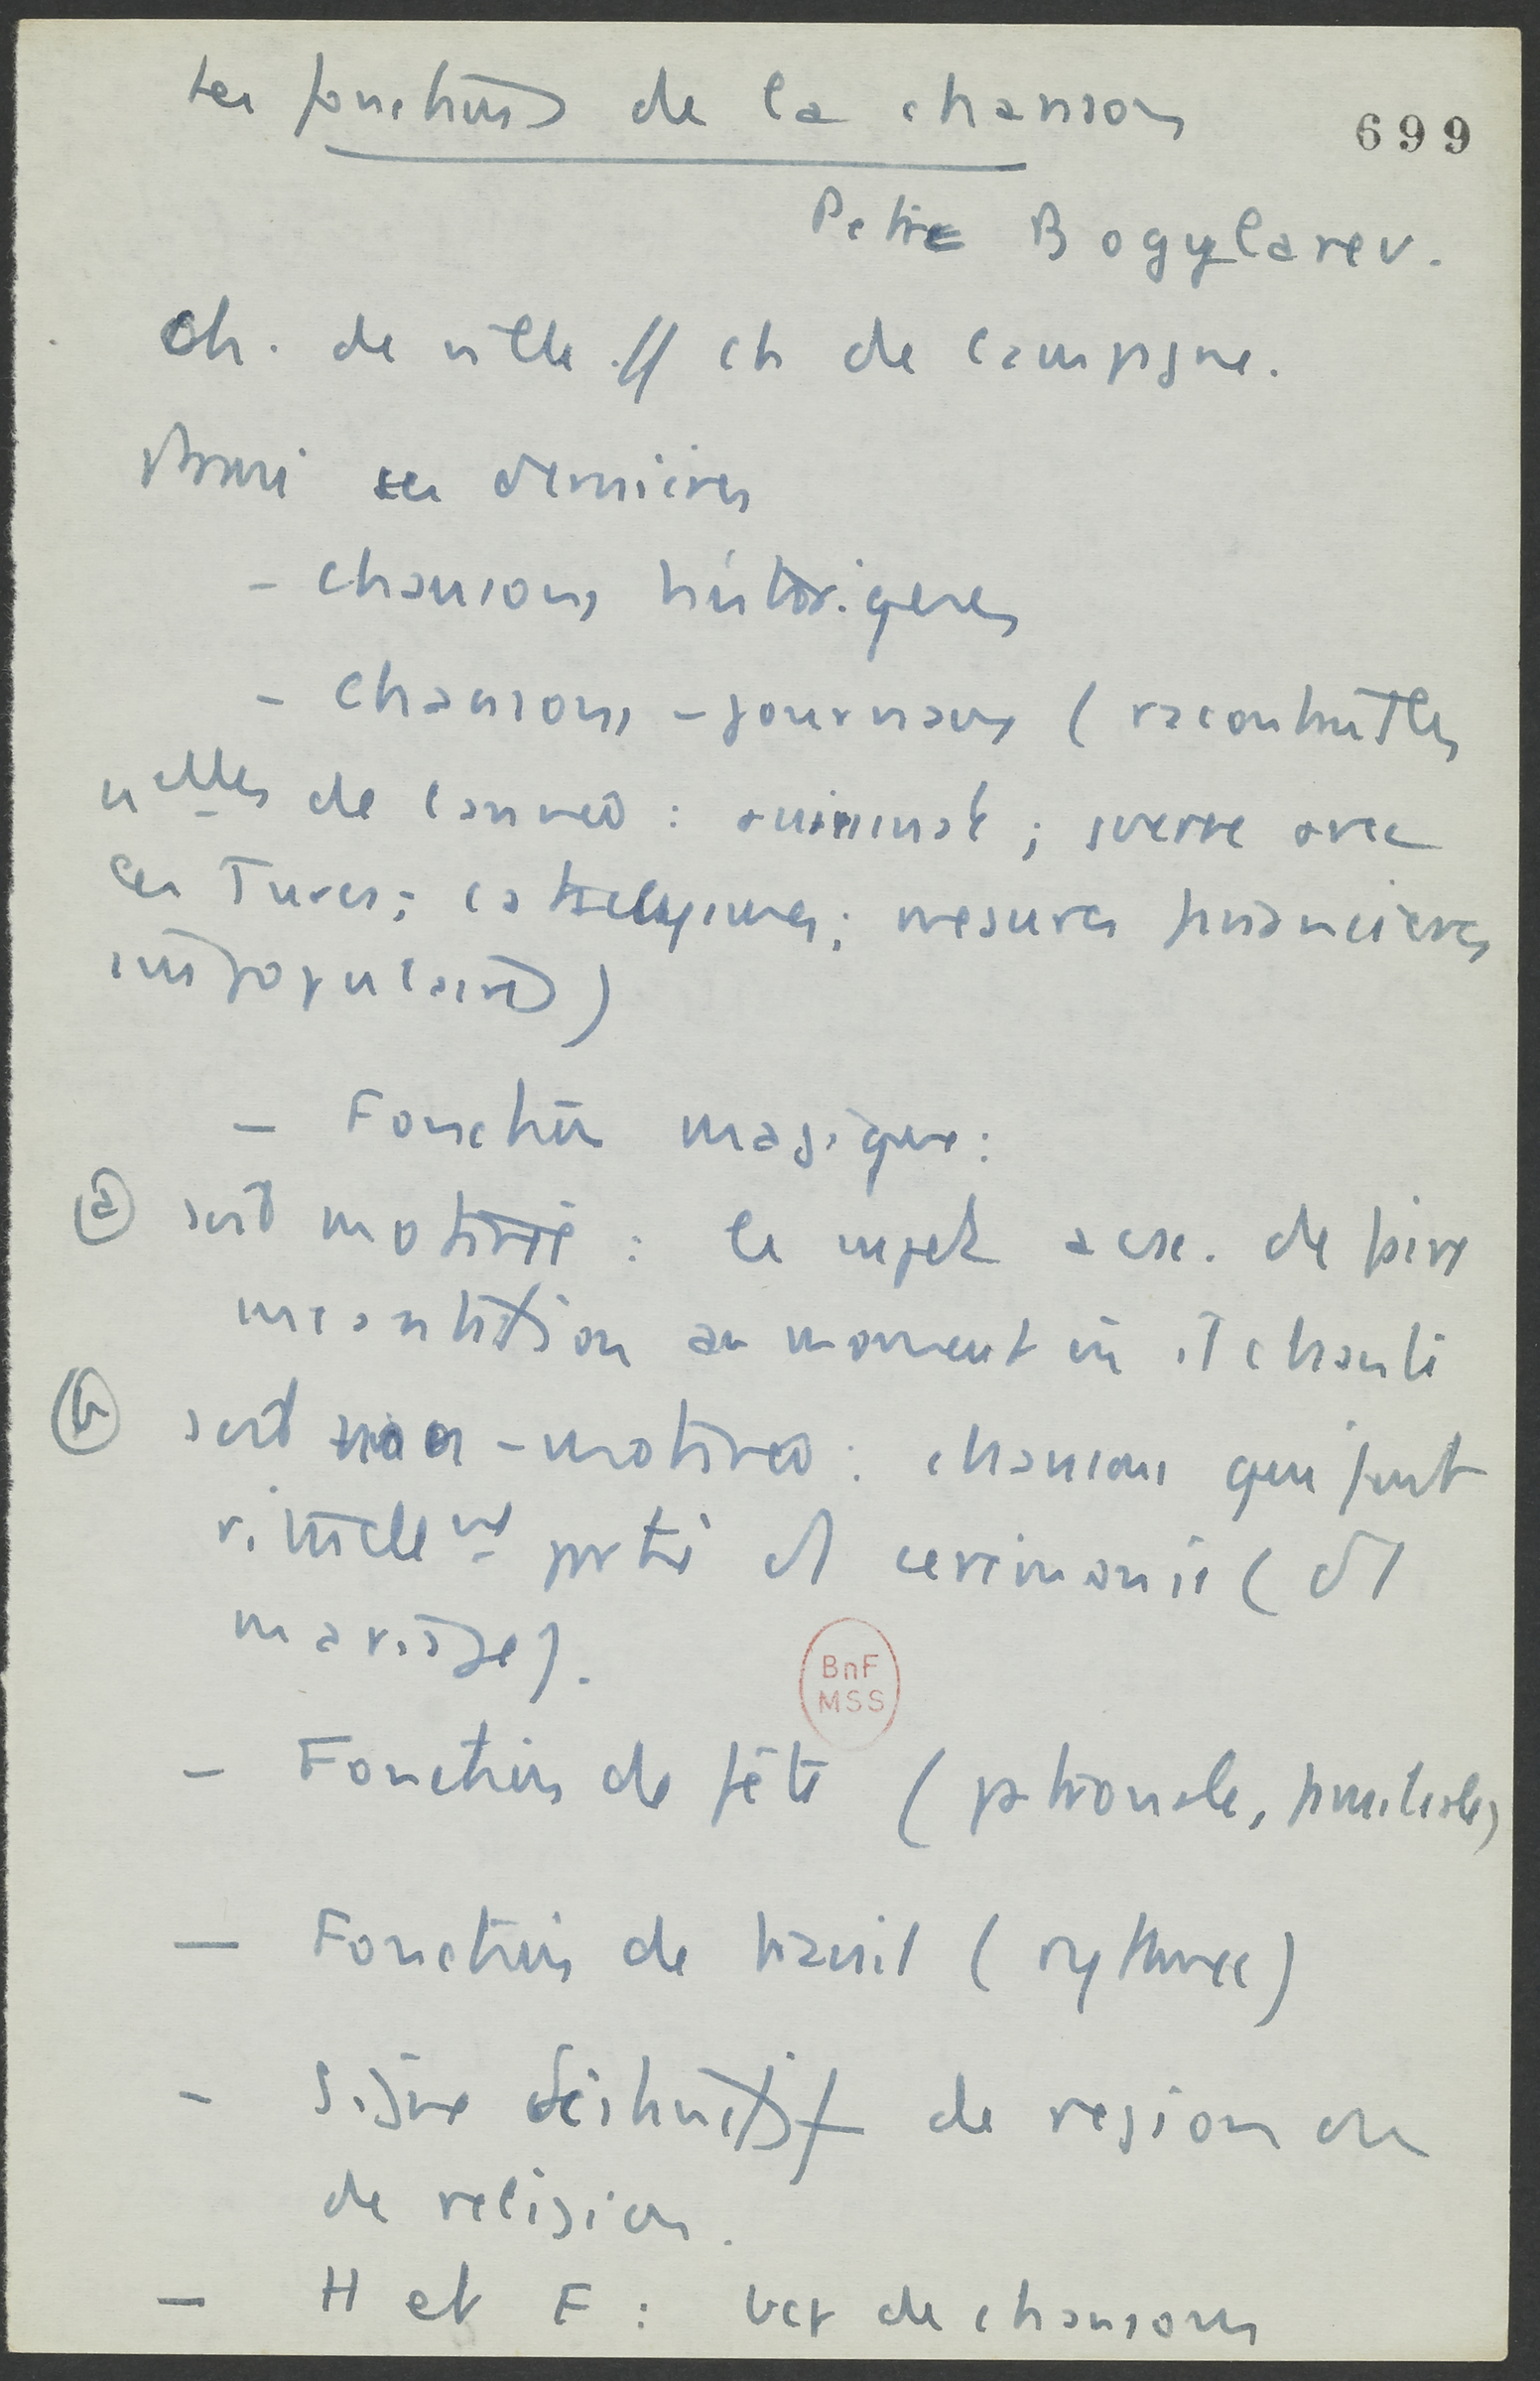 Les fonctions de la chanson
699
Petre Bogylarev.
Ch. de ville // ch de campagne.
Parmi ces dernières
- chansons historiques
- chansons - journaux (racontant les
nelles de l'année : assassinat ; guerre avec
les Turcs ; catastrophes ; mesures financières
impopulaires)
- Fonction magique :
a soit motivée : le sujet acc. de faire
incantation au moment où il chante
b soit non-motivée : chansons qui font
rituellement partie d'1 cérémonie (d'1
mariage).
BnF
MSS
- Fonctions de fête (patronale, familiale)
- Fonctions de travail (rythmée)
- Signe distinctif de region ou
de religion.
- H et F : de chansons